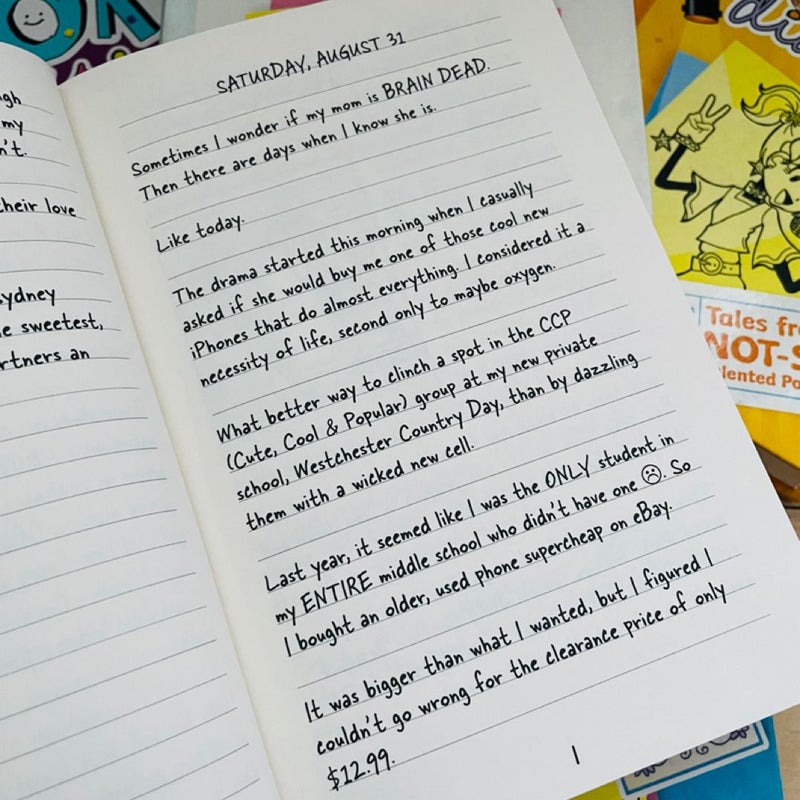 my
their love
sydney
sweetest,
an
SATURDAY, AUGUST 31
Sometimes I wonder if my mom is BRAIN DEAD.
Then there are days when I know she is.
Like today.
The drama started this morning when I casually
asked if she would buy me one of those cool new
iPhones that do almost everything. I considered it a
necessity of life, second only to maybe oxygen.
What better way to clinch a spot in the CCP
(Cute, Cool & Popular) group at my new private
school, Westchester Country Day, than by dazzling
them with a wicked new cell.
Last year, it seemed like I was the ONLY student in
my ENTIRE middle school who didn't have one ☹. So
I bought an older, used phone supercheap on eBay.
It was bigger than what I wanted, but I figured I
couldn't go wrong for the clearance price of only
$12.99.
1
Tales
NOT-S